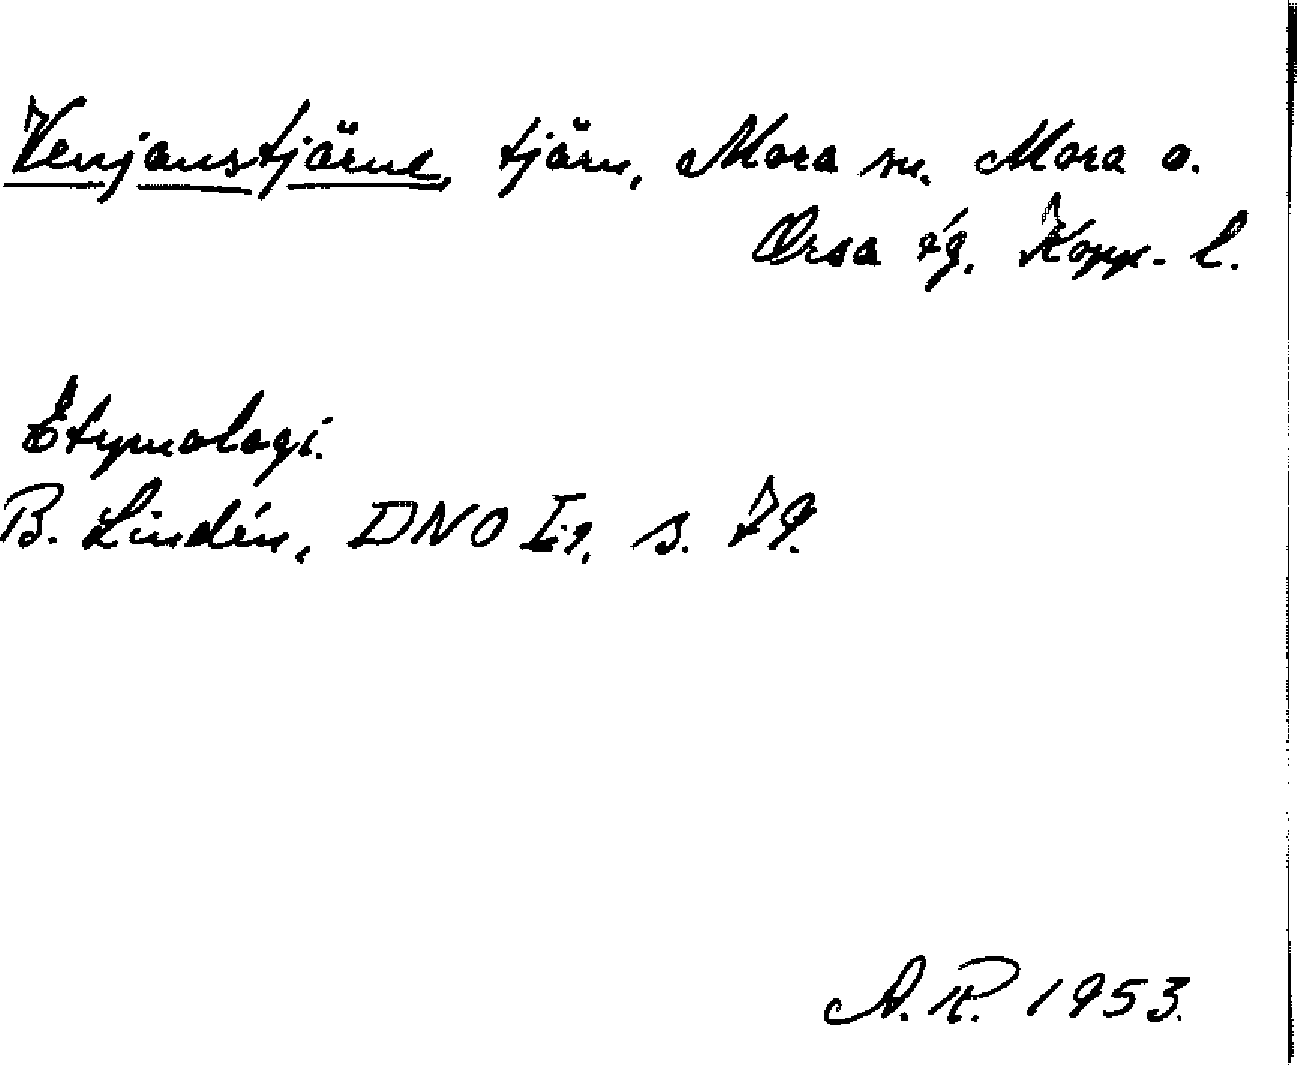 Venjanstjärne, tjärn, Mora sn. Mora o.
Orsa tg. Kopp. l.
Etymologi.
B. Lindén, DNO I:1, s. 79.
A.R. 1953.